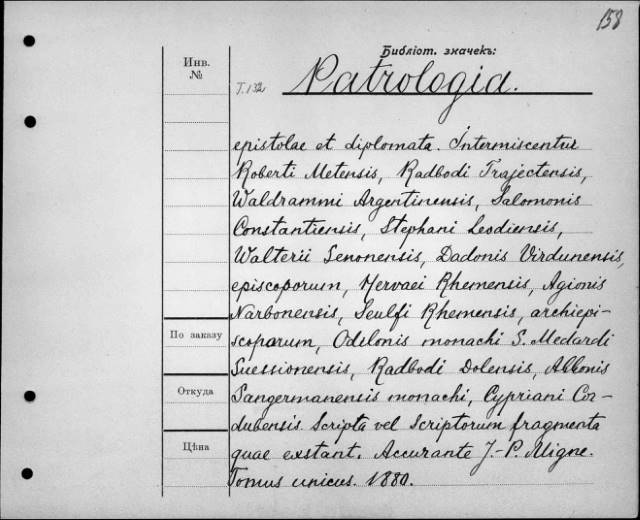 158
Библіот. значекъ:
Инв.
№
T.132
Patrologia.
epistolae et diplomata. Intermiscentur
Roberti Metensis, Radbodi Trajectensis,
Waldrammi Argentinensis, Salomonis
Constantiensis, Stephani Leodiensis,
Walterii Senonensis, Dadonis Virdunensis,
episcoporum, Hervaei Rhemensis, Agionis
Narbonensis, Seulfi Rhemensis, archiepi-
По заказу
scoparum, Odilonis monachi S. Medardi
Suessionensis, Radbodi Dolensis, Abbonis
Откуда
Sangermanensis monachi, Cypriani Cor-
dubensis Scripta vel Scriptorum fragmenta
Цѣна
quae exstant. Accurante J.-P. Migne.
Tomus unicus. 1880.